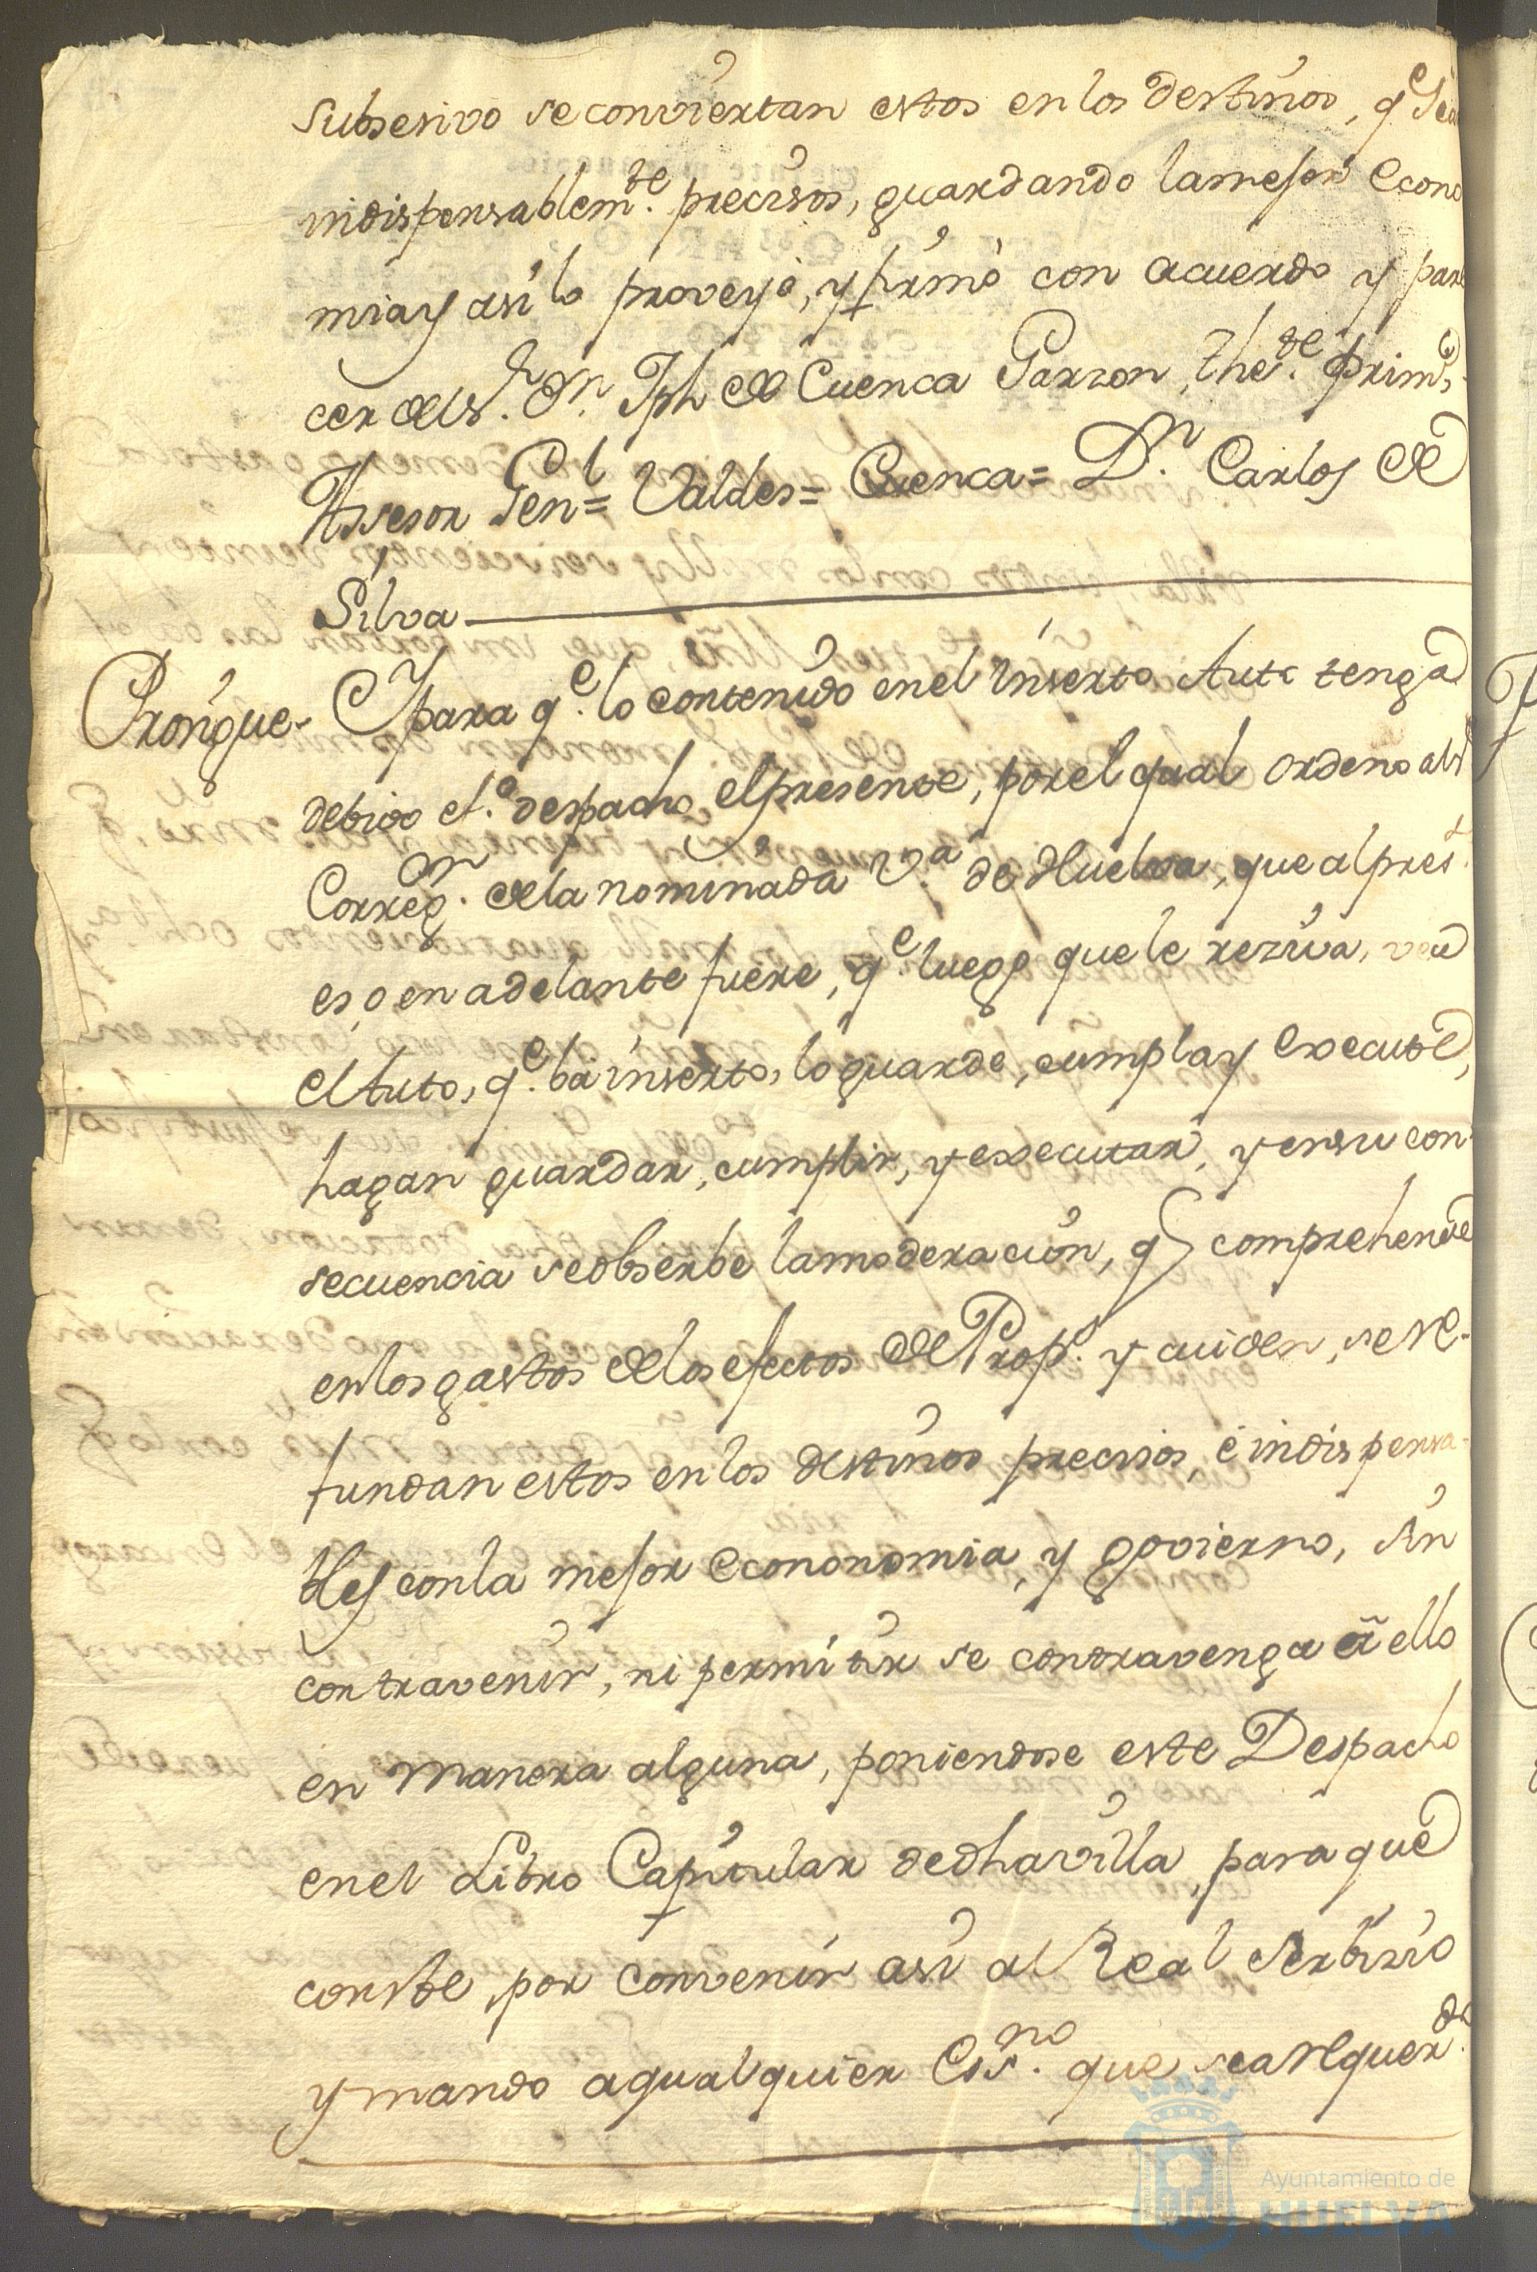 subsesivo se conviertan estos en los destinos, qe sea
indispensablemte. precisos, guardando la mejor econo
mia y asi lo proveyó, y firmó con acuerdo y pare
cer del sr. Dn. Jph de Cuenca Garzon, The.te prim.o
Assesor Genl= Valdes= Cuenca= Dn. Carlos de
Silva
Prosigue- Y para qe. lo contenido en el inserto Auto tenga
debido ef.o despacho el presente, por el qual ordeno al sr
Corregor. de la nominada Va. de Huelva, que al prest.
es, o en adelante fuere, qe. luego que le reziva, vea
el Auto, qe. bá inserto, lo guarde, cumpla y execute,
hagan guardar, cumplir, y executar, y en su con-
secuencia se obserbe la moderacion, q comprehende
en los gastos de los efectos de Prop.s y cuiden, se re-
fundan estos en los destinos precisos, é indispensa-
bles con la mejor econonomia, y govierno, sin
contravenir, ni permitir se contravenga á ello
en manera alguna, poniendose este Despacho
en el Libro Capitular de dha villa, para que
conste, por convenir asi al Real Serbizio
y mando a qualquier Essno. que sea requerdo.
Ayuntamiento de
HUELVA